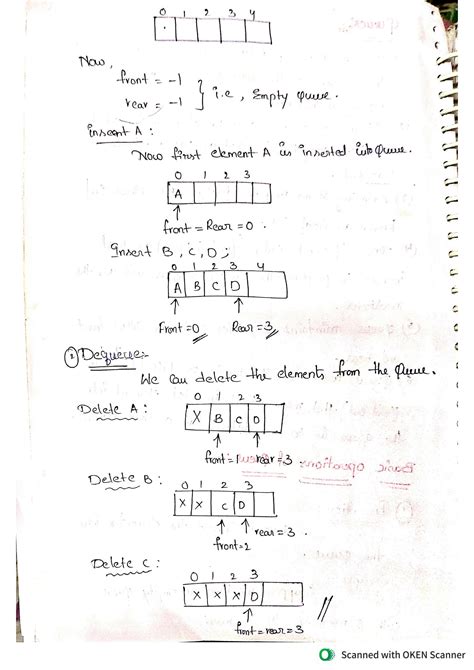 0 1 2 3 4
Now,
front = -1
rear = -1 } i.e, Empty Queue.
insert A :
Now first element A is inserted into Queue.
0 1 2 3
A
front = Rear = 0.
Insert B, C, D;
0 1 2 3 4
A B C D
Front = 0 Rear = 3
② Dequeue:-
We can delete the elements from the Queue.
Delete A :
0 1 2 3
X B C D
front = 1 rear = 3
Delete B :
0 1 2 3
X X C D
rear = 3.
front = 2
Delete C :
0 1 2 3
X X X D
front = rear = 3
Scanned with OKEN Scanner